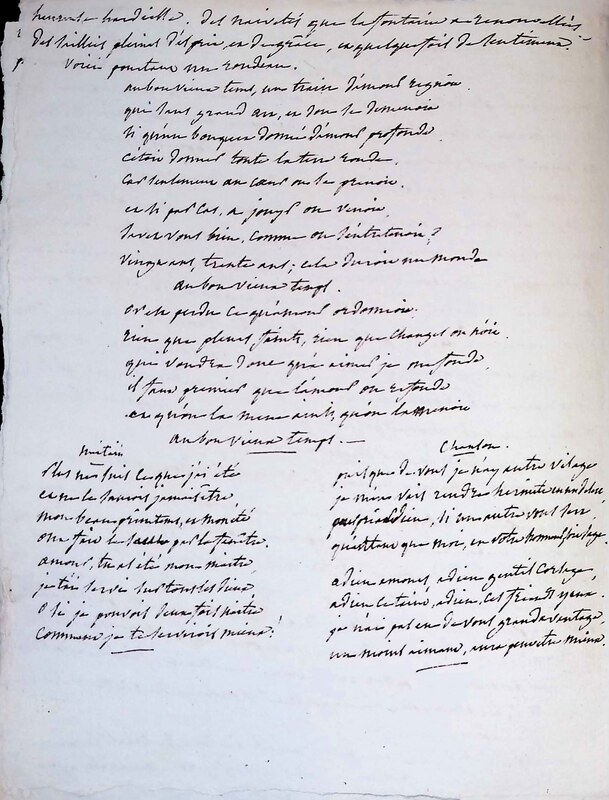 heureuse hardiesse. des naivetés que la fontaine a renouvellées.
des saillies pleines d'esprit, et de grâce, et quelquefois de sentiment.
Voici pourtant un rondeau.
au bon vieux tems, un train d'amour regnoit
qui sans grand art, et don se demenoit
si qu'un bouquet donné d'amour profonde
c'étoit donner toute la terre ronde
car seulement au cœur on se prenoit.
et si par cas, à jouyr on venoit
savez vous bien, comme on s'entretenoit ?
vingt ans, trente ans ; cela duroit un monde
au bon vieux temps.
or est perdu ce qu'amour ordonnoit
rien que pleurs feints, rien que changes on n'oit
qui voudra donc qu'à aimer je me fonde
il faut premier que l'amour on refonde
et qu'on la mene ainsi, qu'on la menoit
au bon vieux temps. —
huitain
Plus ne suis ce que j'ai été
et ne le saurois jamais être
mon beau printems, et mon été
ont fait le saut par la fenêtre.
amour, tu as été mon maitre,
je t'ai servi sur tous les dieux
O si je pouvois deux fois naitre
Comme je te servirois mieux !
Chanson.
puisque de vous je n'ay autre visage
je m'en vais rendre hermite en un desert
pour prier dieu, si un autre vous sert
qu'autant que moi, en votre honneur soit sage
adieu amour, adieu gentil corsage,
adieu ce teint, adieu ces friands yeux.
je n'ai pas eu de vous grand avantage,
un moins aimant, aura peut être mieux.